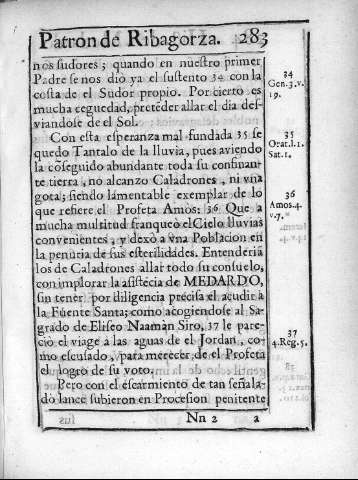 Patron de Ribagorza. 283
nos sudores; quando en nuestro primer
Padre se nos dió ya el sustento 34 con la
costa de el Sudor propio. Por cierto es
mucha ceguedad, pretẽder allar el dia des-
viandose de el Sol.
Con esta esperanza mal fundada 35 se
quedo Tantalo de la lluvia, pues aviendo
la cõseguido abundante toda su confinan-
te tierra, no alcanzo Caladrones, ni vna
gota; siendo lamentable exemplar de lo
que refiere el Profeta Amos: 36 Que a
mucha multitud franqueò el Cielo lluvias
convenientes, y dexò a vna Poblacion en
la penuria de sus esterilidades. Entenderiã
los de Caladrones allar todo su consuelo,
con implorar la asistẽcia de MEDARDO,
sin tener por diligencia precisa el acudir a
la Fuente Santa; como acogiendose al Sa-
grado de Eliseo Naamàn Siro, 37 le pare-
ciò el viage a las aguas de el Jordan, co-
mo escusado, para merecer de el Profeta
el logro de su voto.
Pero con el escarmiento de tan señala-
do lance subieron en Procesion penitente
Nn 2
34
Gen. 3. v.
19.
35
Orat. l. 1.
Sat. 1.
36
Amos. 4.
v. 7.
37
4. Reg. 5.